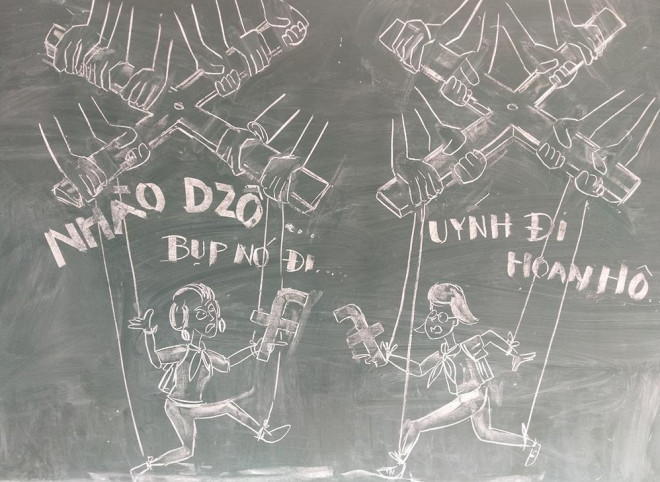 NHÀO DZÔ
BỤP NÓ ĐI....
UYNH ĐI
HOAN HÔ